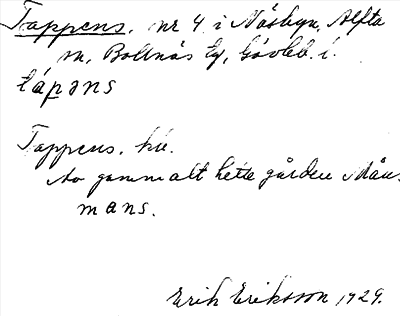 Tappens, nr 4 i Näsbyn, Alfta
sn, Bollnäs tg, Gävleb. l.
tápəns
Tappens, hié.
Av gammalt hette gården Måns
mans.
Erik Eriksson 1929.